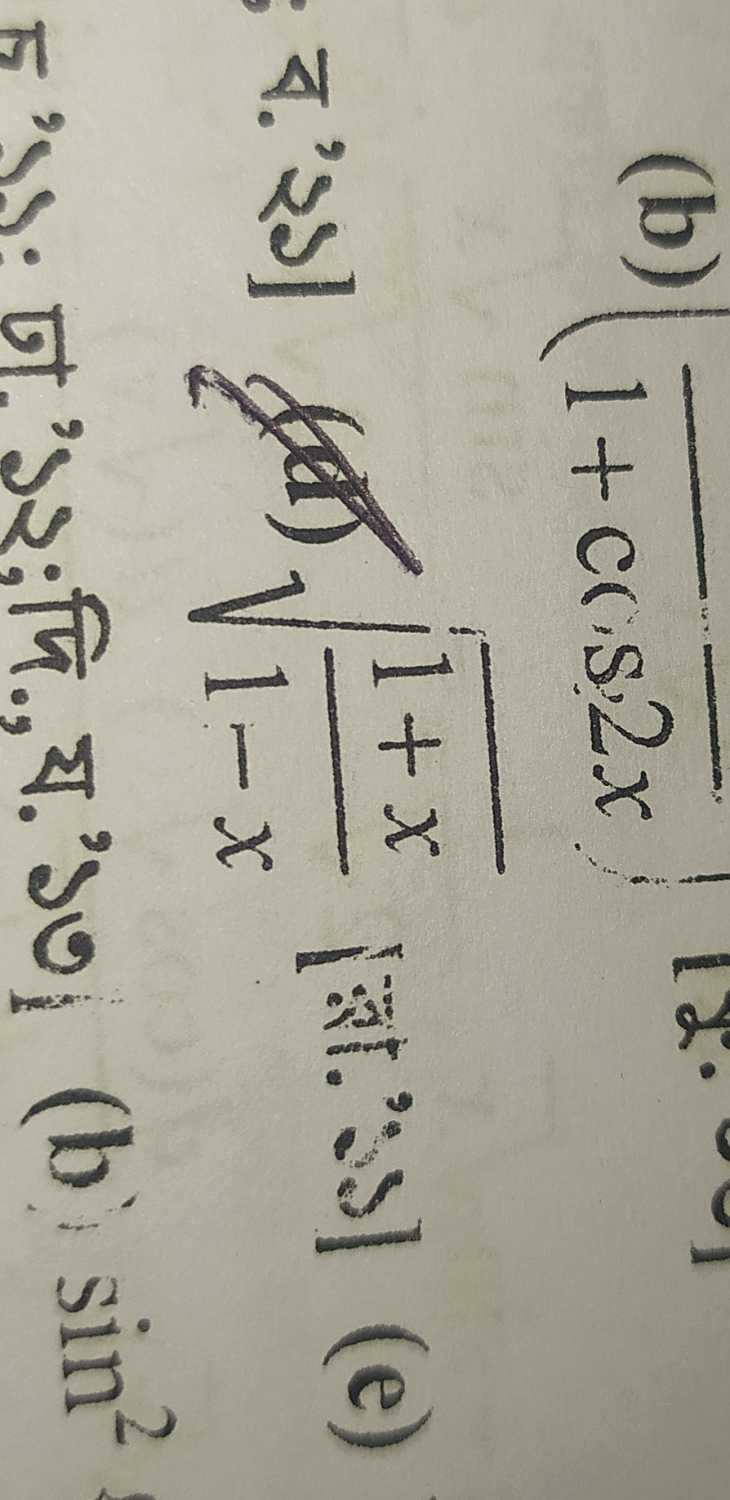 (b) 1 + cos2x
ব. '২১] (d) √(1 + x)/(1 − x) [রা. '১১] (e)
'১১; ঢা. '১২; দি., য. '১৩] (b) sin²